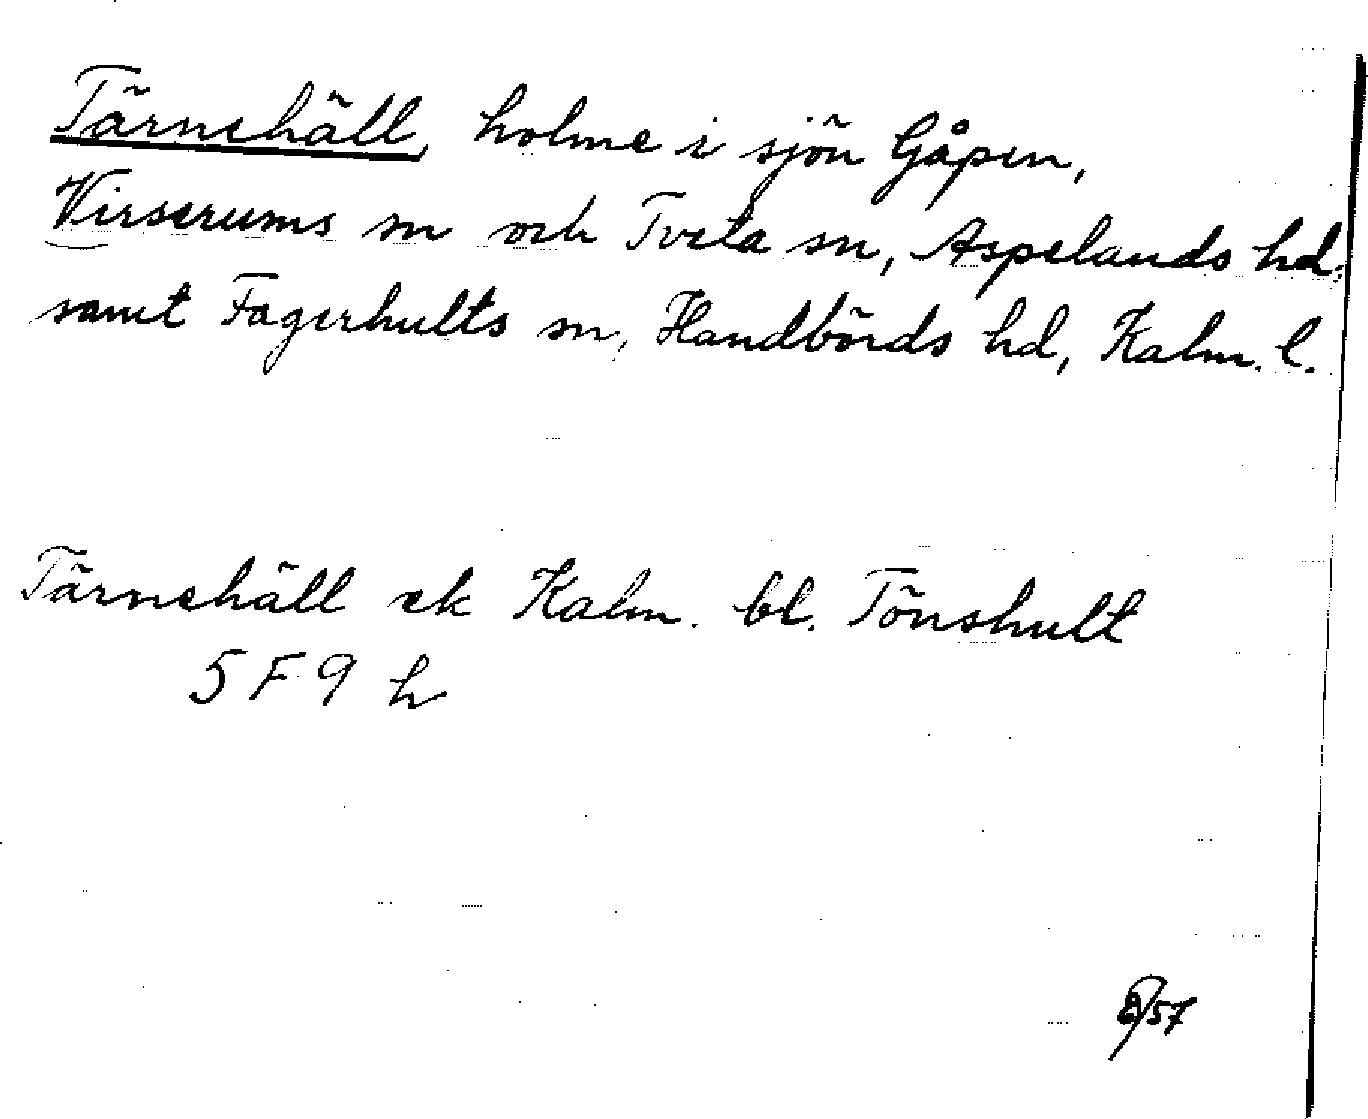 Tärnehäll, holme i sjön Gåpen,
Virserums sn och Tveta sn, Aspelands hd,
samt Fagerhults sn, Handbörds hd, Kalm. l.
Tärnehäll ek Kalm. bl. Tönshult
5 F 9 h
57